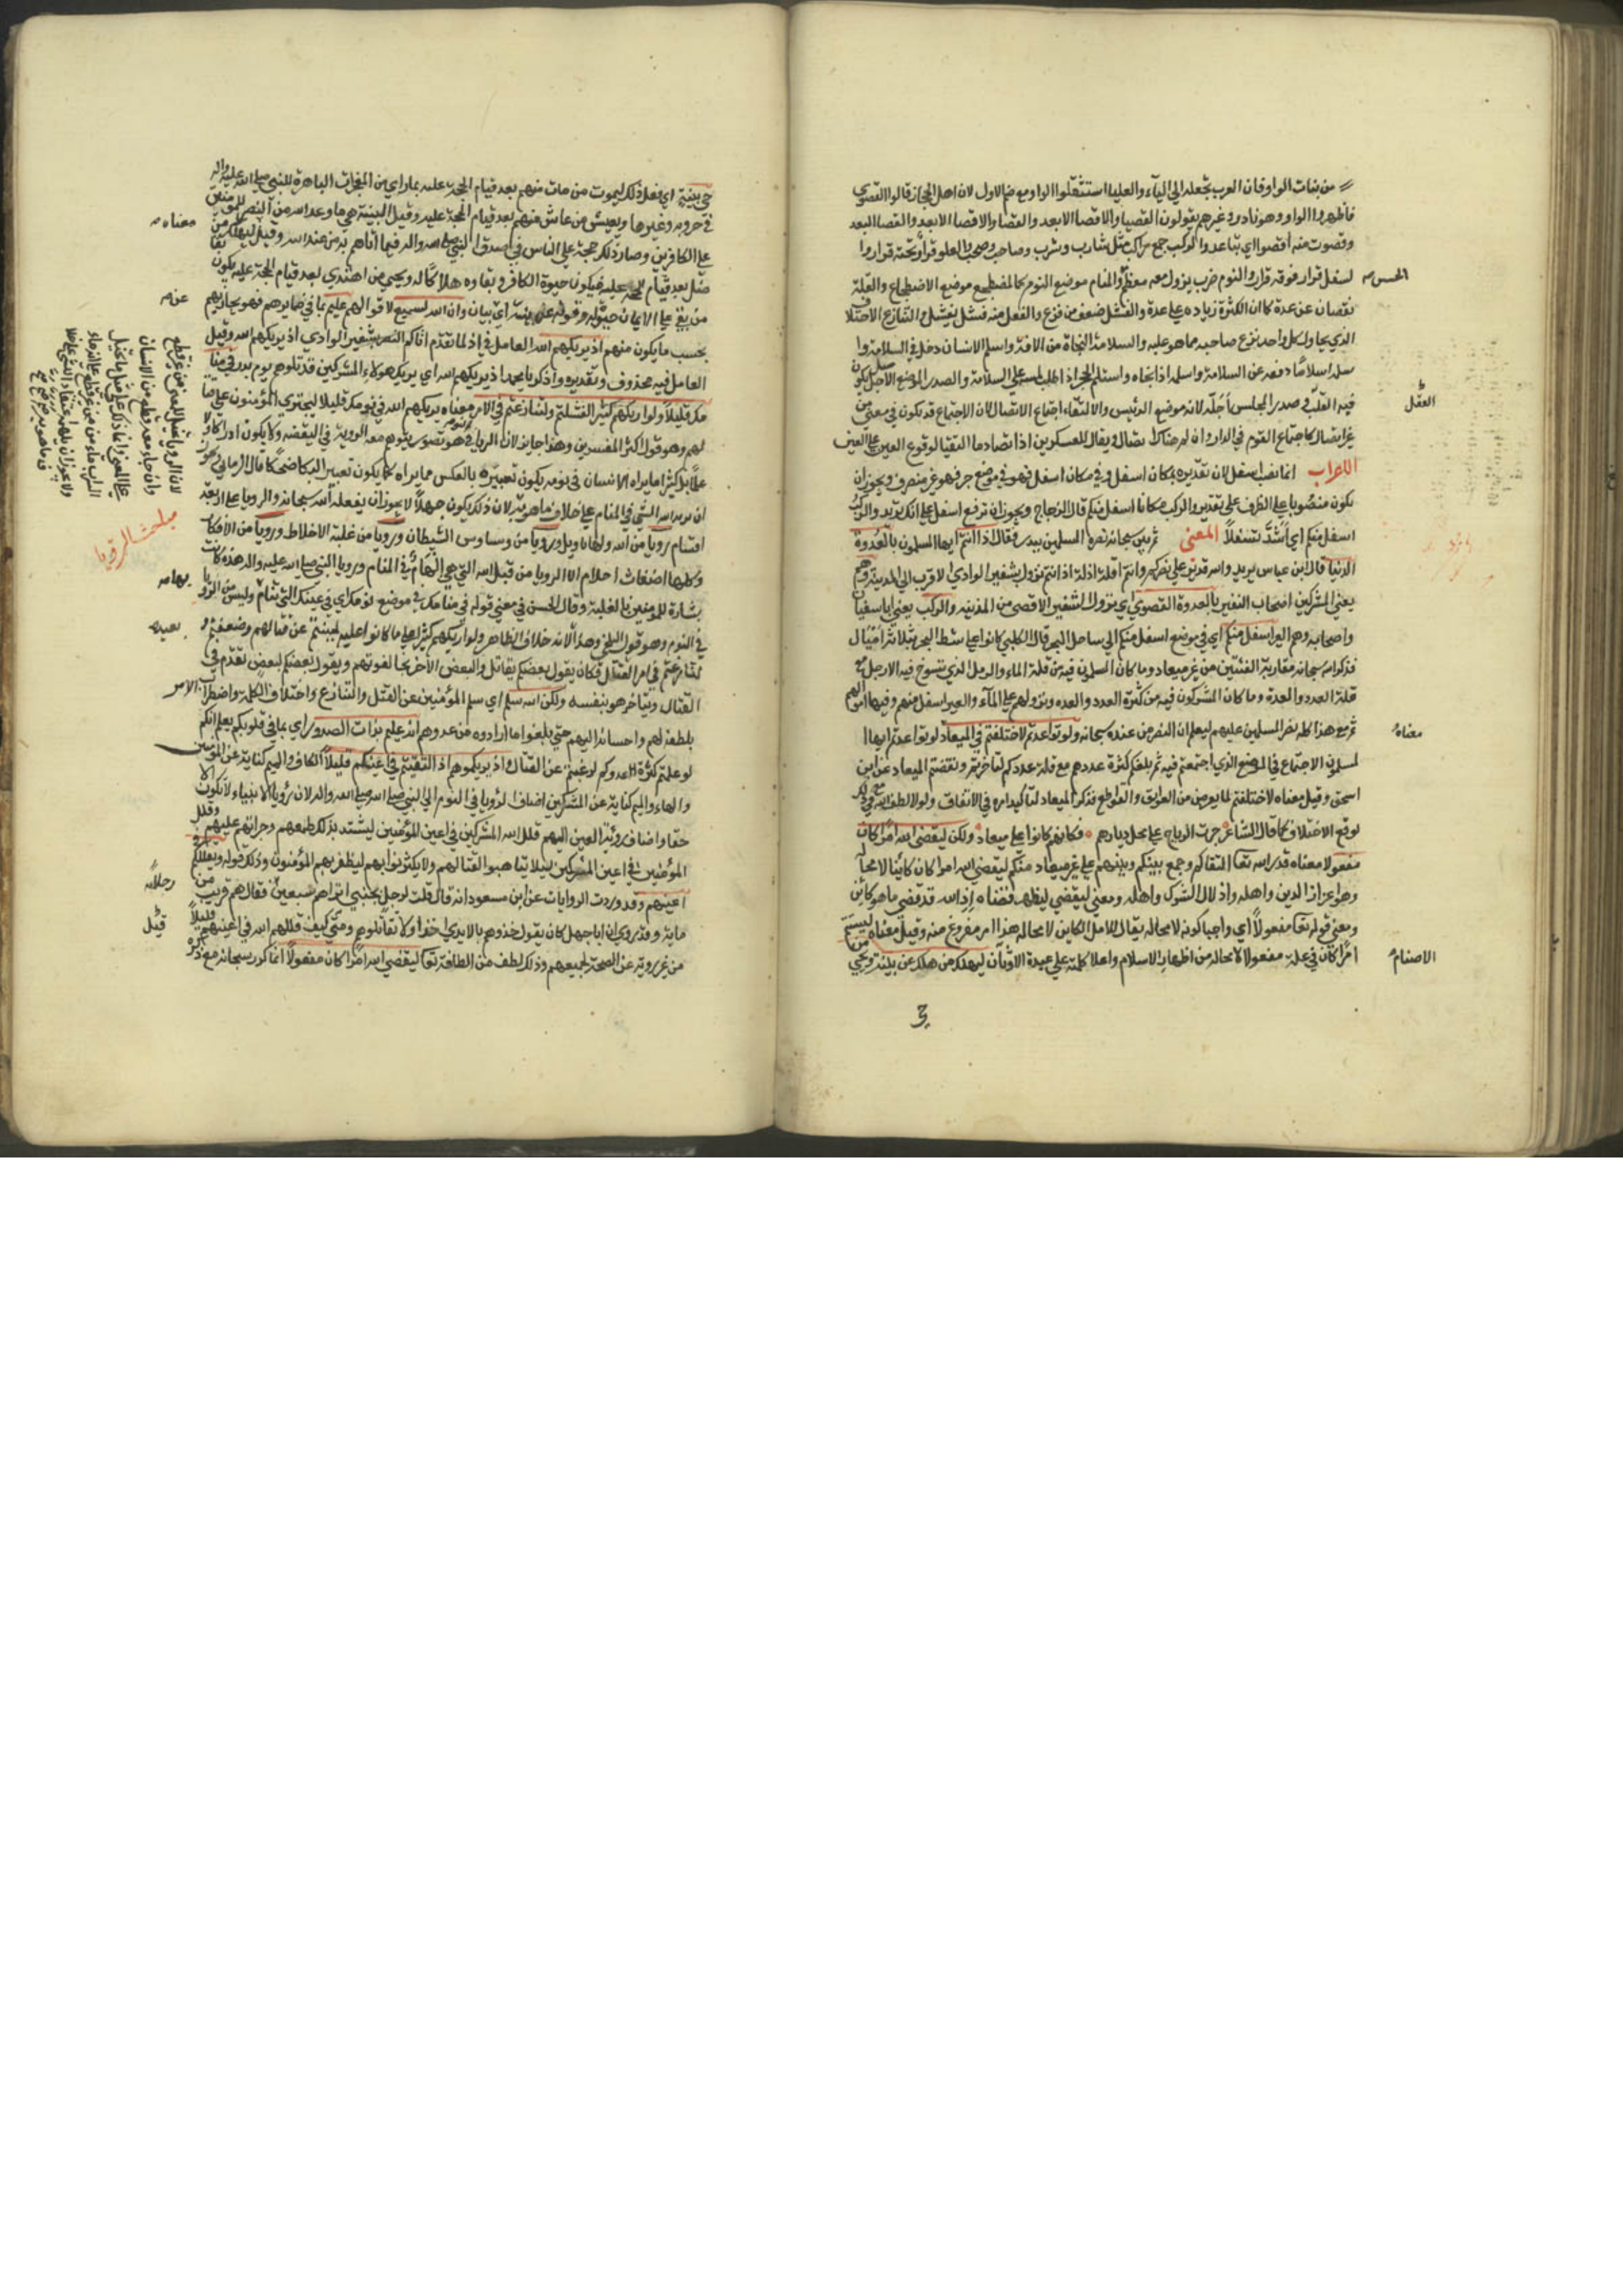 من بنات الواو فان العرب تجعله الى الياء والعليا استثقلوا الواو مع ضم الاول لان اهل الحجاز قالوا القصوى
فاظهروا الواو وهو نادر وغيرهم يقولون القصيا والاقصا الابعد والقصا والاقصا الابعد والقصا البعد
وقصوت منه اقصوا اي تباعد والركب جمع راكب مثل شارب وشرب وصاحب وصحب والعلو قرار تحته قرار وا
لسفل قرار فوقه قرار والنوم ضرب يزول معه معظم والمنام موضع النوم كالمضطجع موضع الاضطجاع والقلة
الحس
نقصان عن عدة كما ان الكثرة زيادة على عدة والفشل ضعف من فزع والفعل منه فشل يفشل والتنازع الاختلاف
الذي يحاول كل واحد نزع صاحبه مما هو عليه والسلامة النجاة من الافة واسلم الانسان دخل في السلامة وا
سلم اسلاما دفعه عن السلامة واسلمه اذا نجاه واستلم الحجر اذا طلب على السلامة والصدر الموضع الاجل يكون
فيه القلب في صدر المجلس اجله لانه موضع الرئيس والالتقاء اجتماع الاتصال لان الاجتماع قد يكون في معنى من
العقل
غير اتصال كاجتماع القوم في الدار وان لم هناك اتصال ويقال للعسكرين اذا تصادما التقيا لوقوع العين على العين
الاعراب انما نصب اسفل لان تقديره بمكان اسفل او في مكان اسفل فهو في موضع جر فهو غير منصرف ويجوز ان
يكون منصوبا على الظرف على تقدير والركب مكانا اسفل منكم قال الزجاج ويجوز ان ترفع اسفل على انك تريد والركب
اسفل منكم اي اشد تسفلا المعنى ثم بين سبحانه نصره المسلمين ببدر فقال اذ انتم ايها المسلمون بالعدوة
الدنيا قال ابن عباس يريد والله قدير على نصركم وانتم اقلة اذلة اذ انتم نزول بشفير الوادي الاقرب الى المدينة وهم
يعني المشركين اصحاب النفير بالعدوة القصوى اي نزول بالشفير الاقصى من المدينه والركب يعني ابا سفيان
واصحابه وهم العير اسفل منكم اي في موضع اسفل منكم الى ساحل البحر قال الكلبي كانوا على شط البحر بثلاثة اميال
فذكر الله سبحانه مقاربة الفئتين من غير ميعاد وما كان المسلمون فيه من قلة الماء والرمل الذي تسوخ فيه الارجل مع
قلة العدد والعدة وما كان المشركون فيه من كثرة العدد والعده ونزولهم على الماء والعير اسفل منهم وفيها اموالهم
ثم مع هذا كله نصر المسلمين عليهم ليعلم ان النصر من عنده سبحانه ولو تواعدتم لاختلفتم في الميعاد لو تواعدتم ايها ا
معناه
لمسلمون الاجتماع في الموضع الذي اجتمعتم فيه ثم بلغكم كثرة عددهم مع قلة عددكم لتاخرتم ونقضتم الميعاد عن ابن
اسحق وقيل معناه لاختلفتم لما يعرض من العوايق والقواطع فذكر الميعاد لتاكيد امره في الاتفاق ولولا لطف الله مع ذلك
لوقع الاختلاف كما قال الشاعر جرت الرياح على محل ديارهم فكانهم كانوا على ميعاد ولكن ليقضي الله امرا كان
مفعولا معناه قدر الله تعا التقاكم وجمع بينكم وبينهم على غير ميعاد منكم ليقضي الله امرا كان كائنا لا محالة
وهو اعزاز الدين واهله واذلال الشرك واهله ومعنى ليقضي ليظهر قضاه اذ الله قد قضى ما هو كائن
ومعنى قوله تعا مفعولا اي واجبا كونه لا محالة يقال للامر الكاين لا محاله هذا امر مفروغ منه وقيل معناه ليتم
امرا كان في علمه مفعولا لا محالة من اظهار الاسلام واعلا كلمته على عبدة الاوثان ليهلك من هلك عن بينة ويحيى من
الاصنام
حي عن بينة اي فعل ذلك ليموت من مات منهم بعد قيام الحجة عليه بما راى من المعجزات الباهرة للنبي صلى الله عليه واله
في حروبه وغيرها ويعيش من عاش منهم بعد قيام الحجة عليه وقيل البينة هي ما وعد الله من النصر للمؤمنين
معناه
على الكافرين وصار ذلك حجة على الناس في صدق النبي صلى الله عليه واله فيما اتاهم به من عند الله وقيل ليهلك من
ضل بعد قيام الحجة عليه فيكون حيوة الكافر وبقاوه هلاكا له ويحيى من اهتدى بعد قيام الحجة عليه يكون بقا
من بقي على الايمان حيوة له وقوله عن بينة اي بيان وان الله لسميع لاقوالهم عليم بما في ضمايرهم فهو يجازيهم
عن
بحسب ما يكون منهم اذ يريكهم الله العامل في اذ ما تقدم اتاكم النصر بشفير الوادي اذ يريكهم الله وقيل
العامل فيه محذوف وتقديره واذكر يا محمد اذ يريكهم الله اي يريك هؤلاء المشركين قد تلوهم يوم بدر في منا
مك قليلا ولو اريكهم كثيرا لفشلتم ولتنازعتم في الامر معناه يريكهم الله في نومك قليلا ليجترئ المؤمنون على قتا
لهم وهو قول اكثر المفسرين وهذا جايز لان الرؤيا في النوم هو تصور يتوهم معه الرؤية في اليقظه ولا يكون ادراكا ولا
علما بل كثير مما يراه الانسان في نومه يكون تعبيره بالعكس مما يراه كما يكون تعبير البكا ضحكا قال الرماني ويجوز
ان يريه الله الشي في المنام على خلاف ما هو به لان ذلك يكون جهلا لا يجوز ان يفعله الله سبحانه والرويا على اربعة
اقسام رويا من الله ولها تاويل ورويا من وساوس الشيطان ورويا من غلبة الاخلاط ورويا من الافكار
وكلها اضغاث احلام الا الرويا من قبل الله التي هي الهام في المنام ورويا النبي صلى الله عليه واله هذه كانت
بشارة له وللمؤمنين بالغلبة وقال الحسن في معنى قوله في منامك في موضع نومك اي في عينك التي تنام وليس من الرؤيا
بها
في النوم وهو قول البلخي وهذا لانه خلاف الظاهر ولو اريكهم كثيرا على ما كانوا عليه لجبنتم عن قتالهم وضعفتم و
لتنازعتم في امر القتال فكان يقول بعضكم يقاتل والبعض الاخر يخالفونهم ويقول بعضكم لبعض تقدم في
القتال ويتاخر هو بنفسه ولكن الله سلم اي سلم المؤمنين عن الفشل والتنازع واختلاف الكلمة واضطراب الامر
بلطفه لهم واحسانه اليهم حتى بلغوا ما ارادوه من عدوهم انه عليم بذات الصدور اي بما في قلوبكم يعلم انكم
لو علمتم كثرة عدوكم لرغبتم عن القتال واذ يريكموهم اذ التقيتم في اعينكم قليلا الكاف والميم كناية عن المؤمنين
والهاء والميم كناية عن المشركين اضاف الرؤيا في النوم الى النبي صلى الله عليه واله لان رؤيا الانبياء لا تكون الا
حقا واضاف رؤية العين اليهم قلل الله المشركين في اعين المؤمنين ليشتد بذلك طمعهم وجراتهم عليهم وقلل
المؤمنين في اعين المشركين ليلا يتاهبوا لقتالهم ولا يكترثوا بهم ليظفر بهم المؤمنون وذلك قوله ويقللكم في
اعينهم وقد وردت الروايات عن ابن مسعود انه قال قلت لرجل بجنبي اتراهم سبعين فقال هم قريب من
رجلا
ماية وقد روي ان ابا جهل كان يقول خذوهم بالايدي اخذا ولا تقاتلوهم ومتى كيف قللهم الله في اعينهم قليلا
قيل
من غير رؤية عن الصحة لجميعهم وذلك لطف من الطافه تعا ليقضي الله امرا كان مفعولا انما كرر سبحانه مع ذكره
مبحث الرؤيا